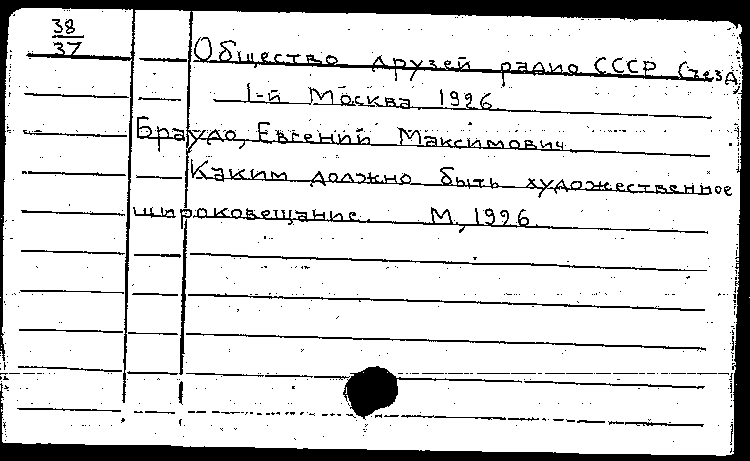 38
37
Общество друзей радио СССР Съезд,
1-й Москва 1926
Браудо, Евгений Максимович
Каким должно быть художественное
широковещание. М, 1926